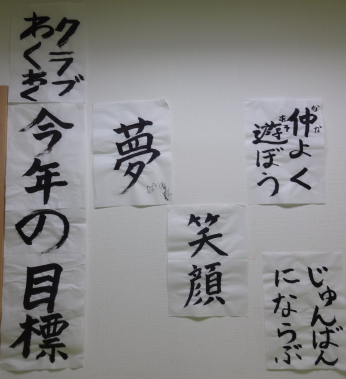 クラブ
わくわく
今年の目標
夢
仲よく
遊ぼう
笑顔
じゅんばん
にならぶ